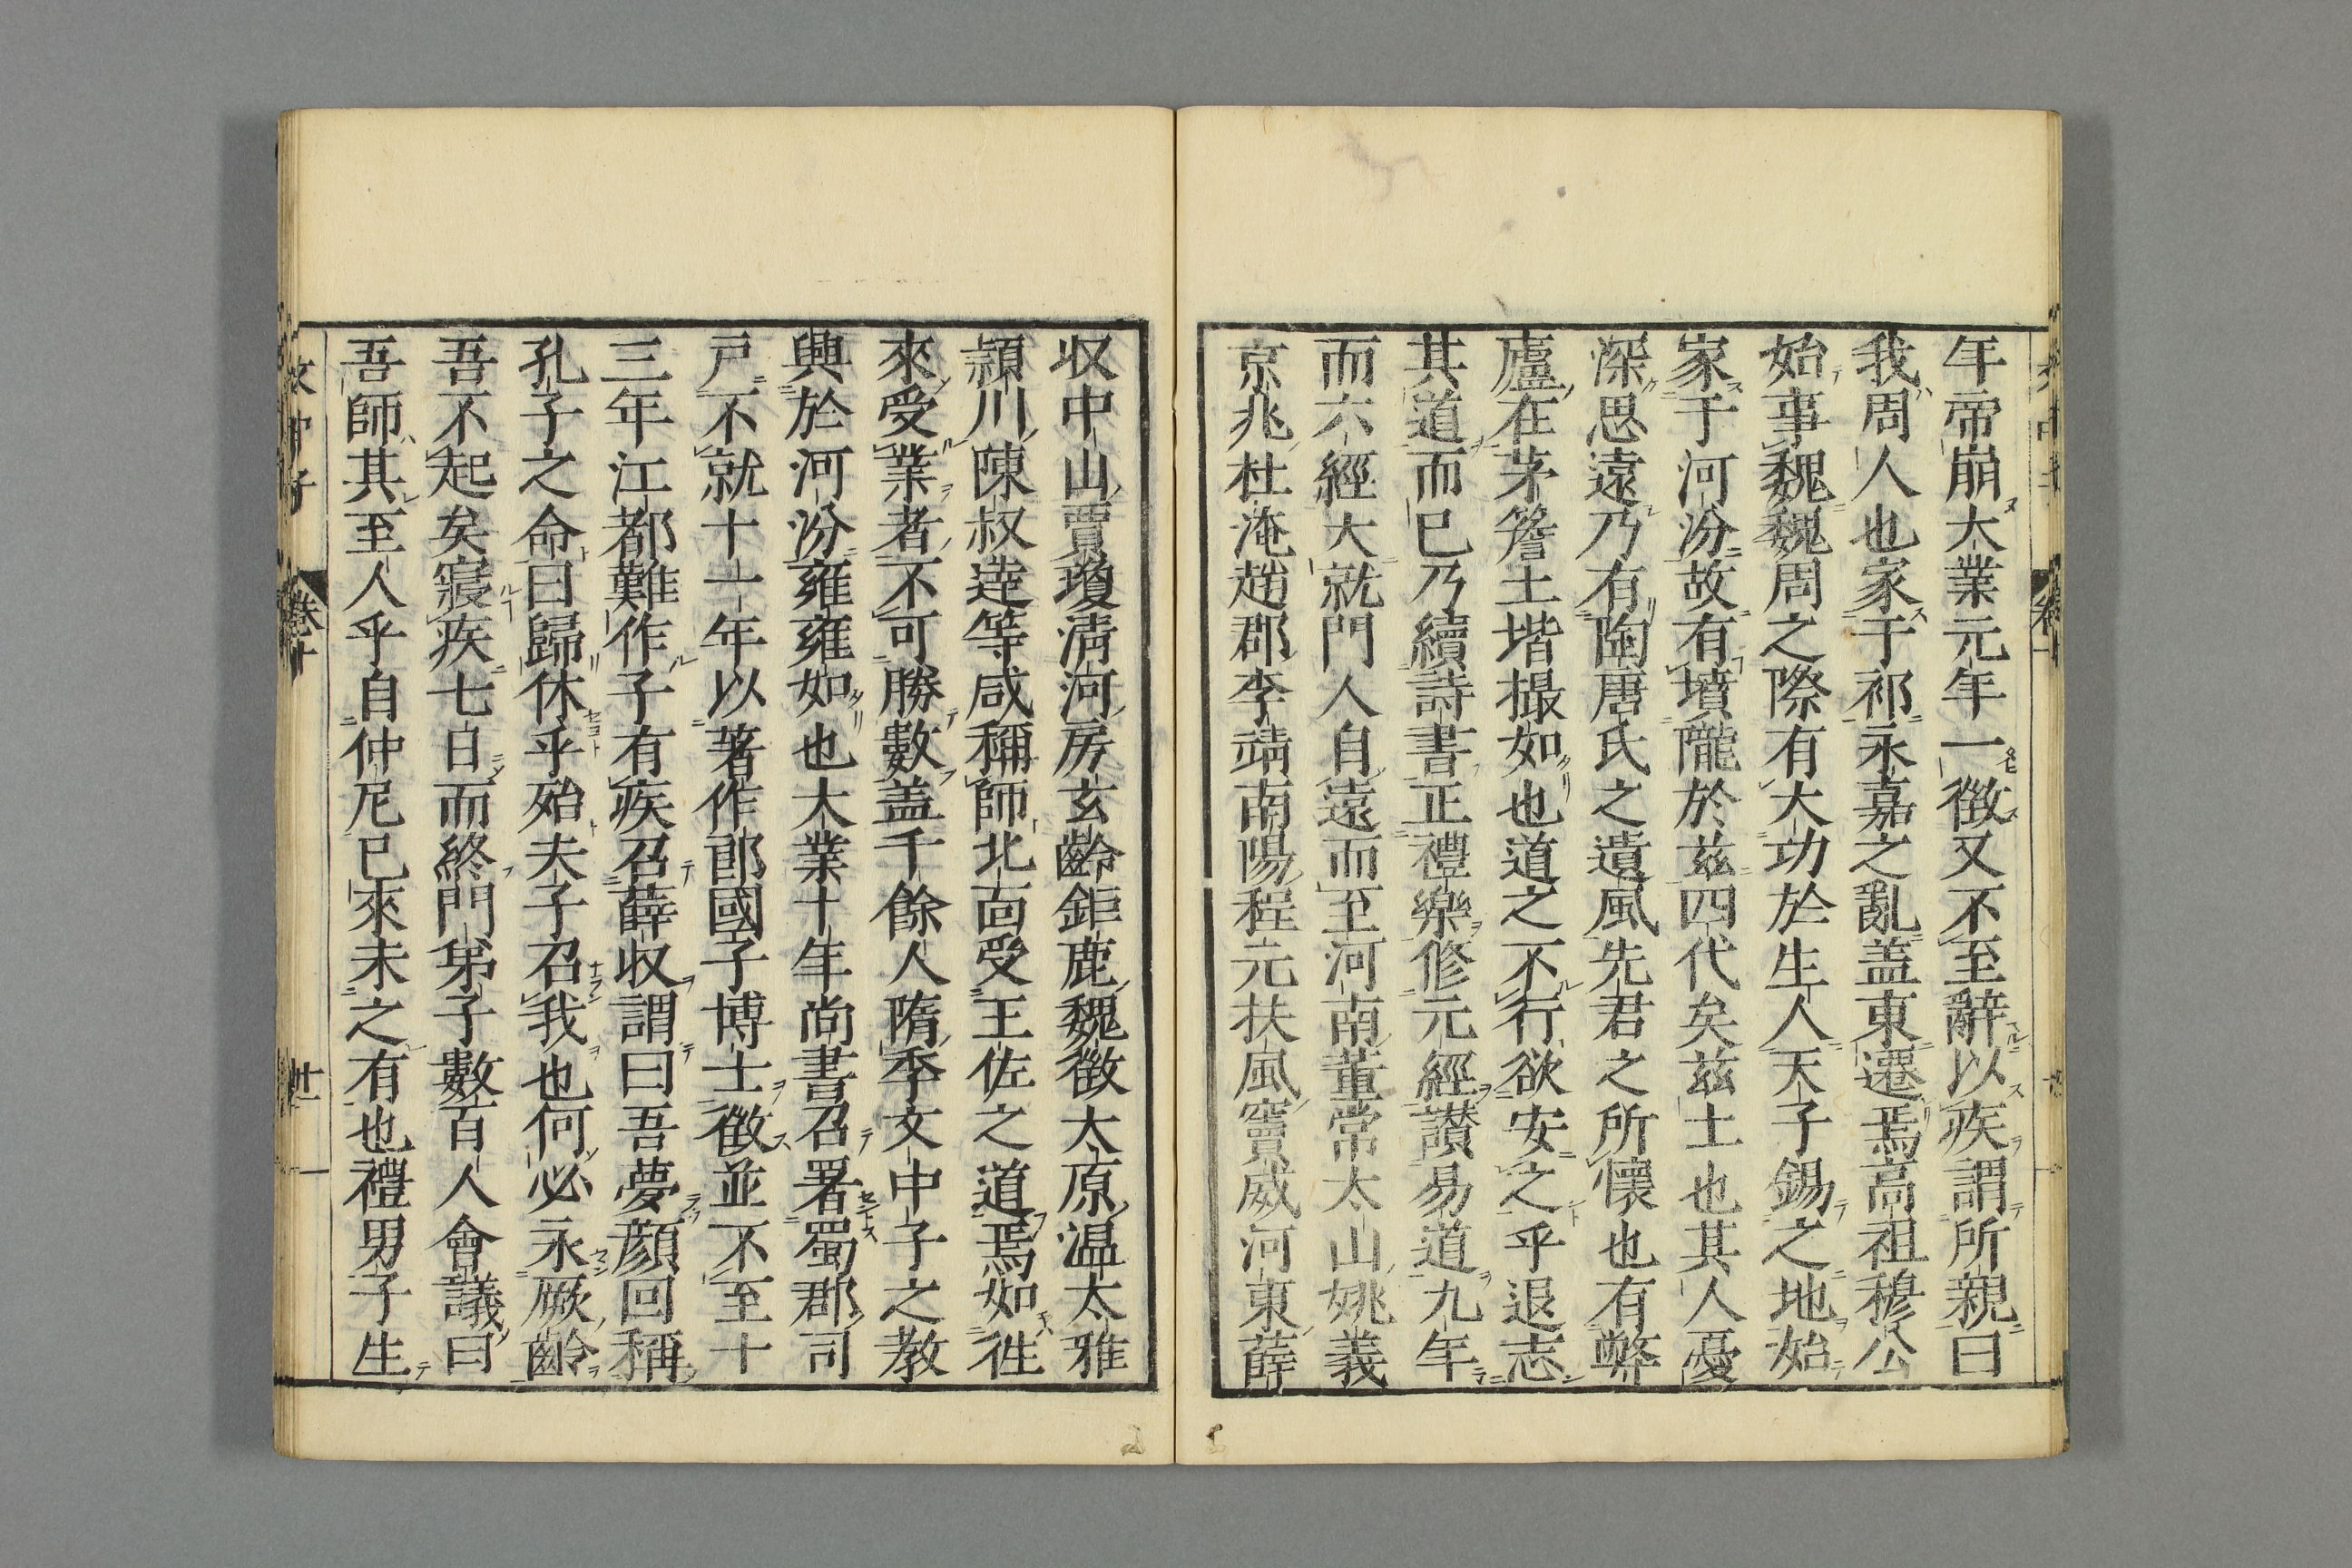 年帝崩大業元年一徴又不至辭以疾謂所親曰
我周人也家于祁永嘉之亂盖東遷焉高祖穆公
始事魏魏周之際有大功於生人天子錫之地始
家于河汾故有墳隴於兹四代矣兹土也其人憂
深思遠乃有陶唐氏之遺風先君之所懷也有弊
廬在茅簷土堦撮如也道之不行欲安之乎退志
其道而已乃續詩書正禮樂修元經讃易道九年
而六經大就門人自遠而至河南董常太山姚義
京兆杜淹趙郡李靖南陽程元扶風竇威河東薛
収中山賈瓊清河房玄齡鉅鹿魏徴太原温太雅
頴川陳叔達等咸稱師北靣受王佐之道焉如徃
來受業者不可勝數盖千餘人隋季文中子之教
興於河汾雍雍如也大業十年尚書召署蜀郡司
戸不就十一年以著作郎國子博士徴並不至十
三年江都難作子有疾召薛収謂曰吾夢顔回稱
孔子之命曰歸休乎殆夫子召我也何必永厥齡
吾不起矣寢疾七日而終門弟子數百人會議曰
吾師其至人乎自仲尼已來未之有也禮男子生
文中子
卷十
廿一